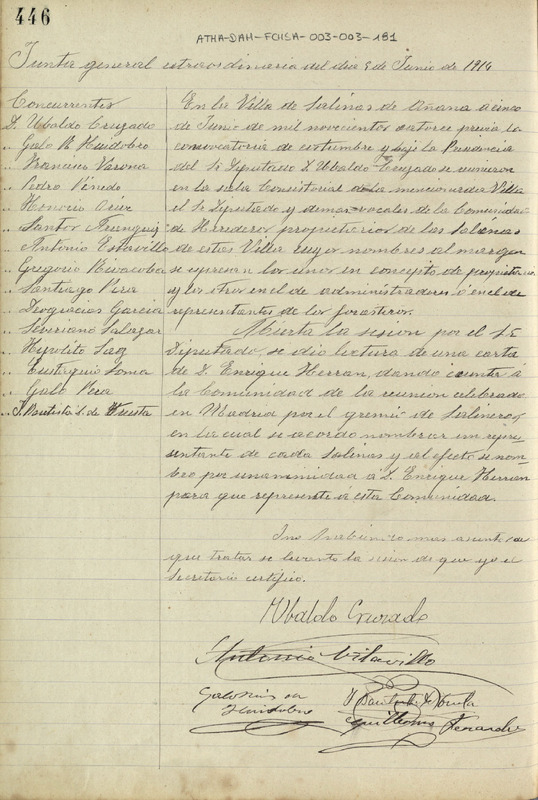 446
ATHA-DAH-FCHSA-003-003-181
Junta general extraordinaria del dia 5 de Junio de 1914
Concurrentes
D. Ubaldo Cruzado
.. Galo R. Huidobro
.. Francisco Varona
.. Pedro Pinedo
.. Honorio
.. Santos
.. Antonio Estavillo
.. Gregorio Rivacoba
.. Santiago Pera
.. Deogracias Garcia
.. Severiano Salazar
.. Hipolito Saez
.. Eustaquio Loma
.. Galo Pera
.. J. Bautista L. de
En la Villa de Salinas de Añana a cinco
de Junio de mil novecientos catorce previa la
convocatoria de costumbre y bajo la Presidencia
del Sr Diputado D. Ubaldo Cruzado se reunieron
en la sala Consistorial de la mencionada Villa
el Sr Diputado y demas vocales de la Comunidad
de Herederos propietarios de las Salinas
de esta Villa cuyos nombres al margen
se espresan los unos en concepto de propietarios
y los otros en el de administradores ó en el de
representantes de los forasteros.
Abierta la sesion por el Sr
Diputado, se dio lectura de una carta
de D. Enrique Herran, dando cuenta á
la Comunidad de la reunion celebrada
en Madrid por el gremio de Salineros
en la cual se acordo nombrar un repre-
sentante de cada Salinas y al efecto se nom-
bro por unanimidad á D. Enrique Herran
para que represente á esta Comunidad.
Y no habiendo mas asuntos de
que tratar se levanto la sesion de que yo el
Secretario certifico.
Ubaldo Cruzado
Antonio Estavillo
Galo Ruiz de
Huidobro
J Bautista L de
Guillermo